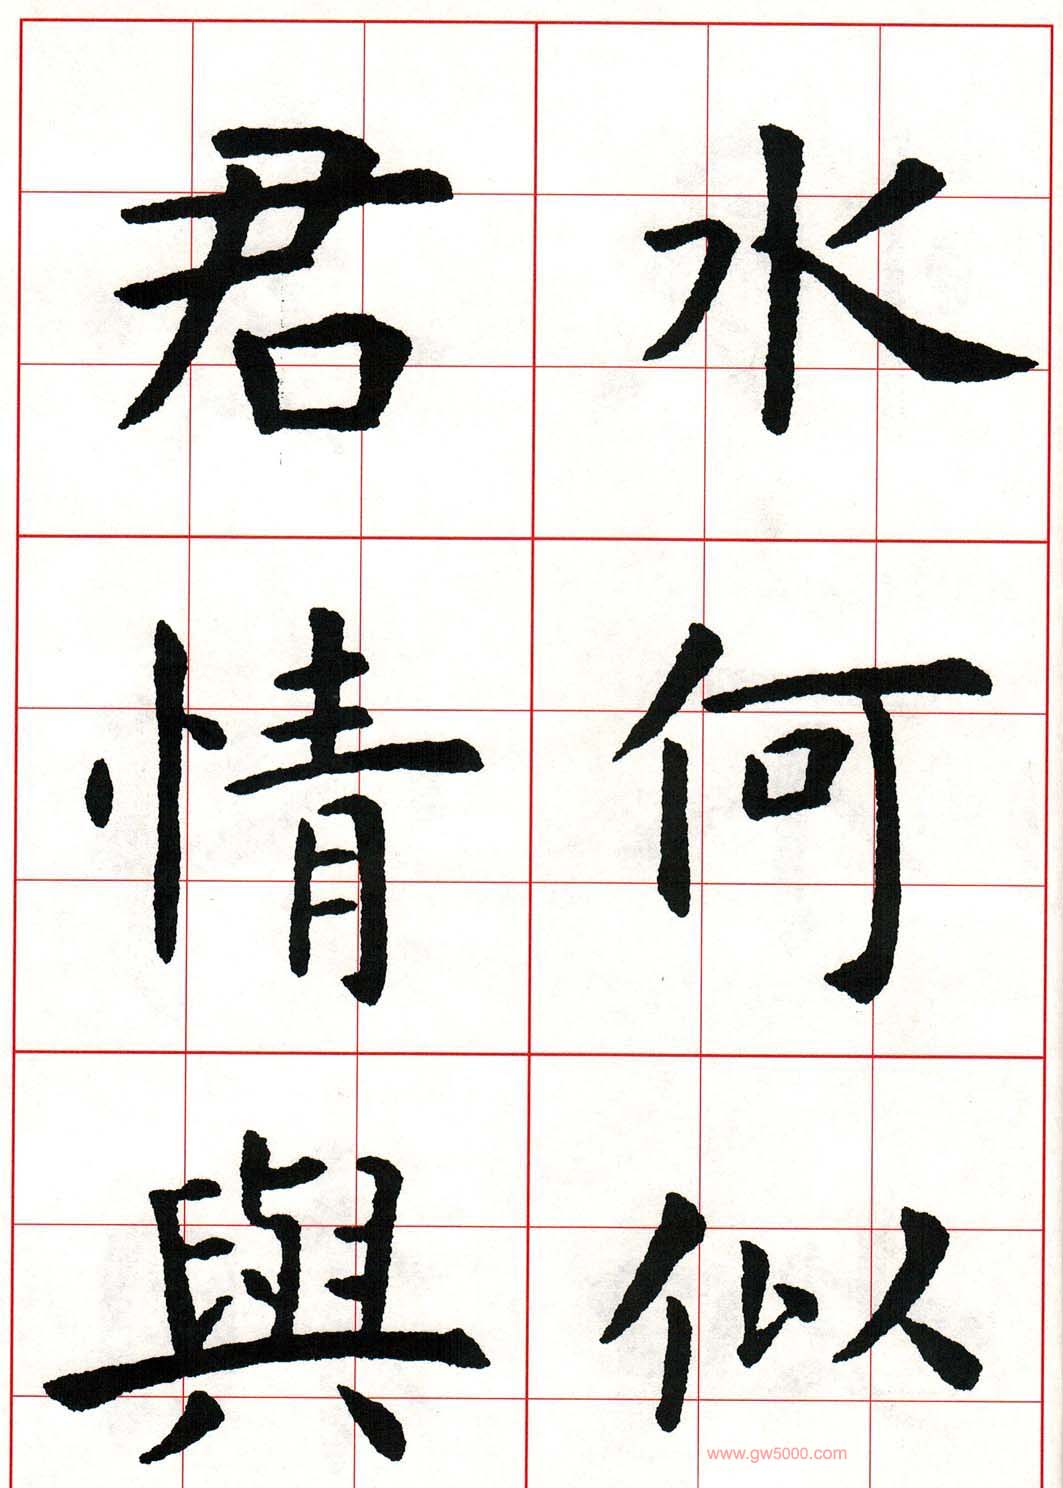 水何似
君情與
www.gw5000.com